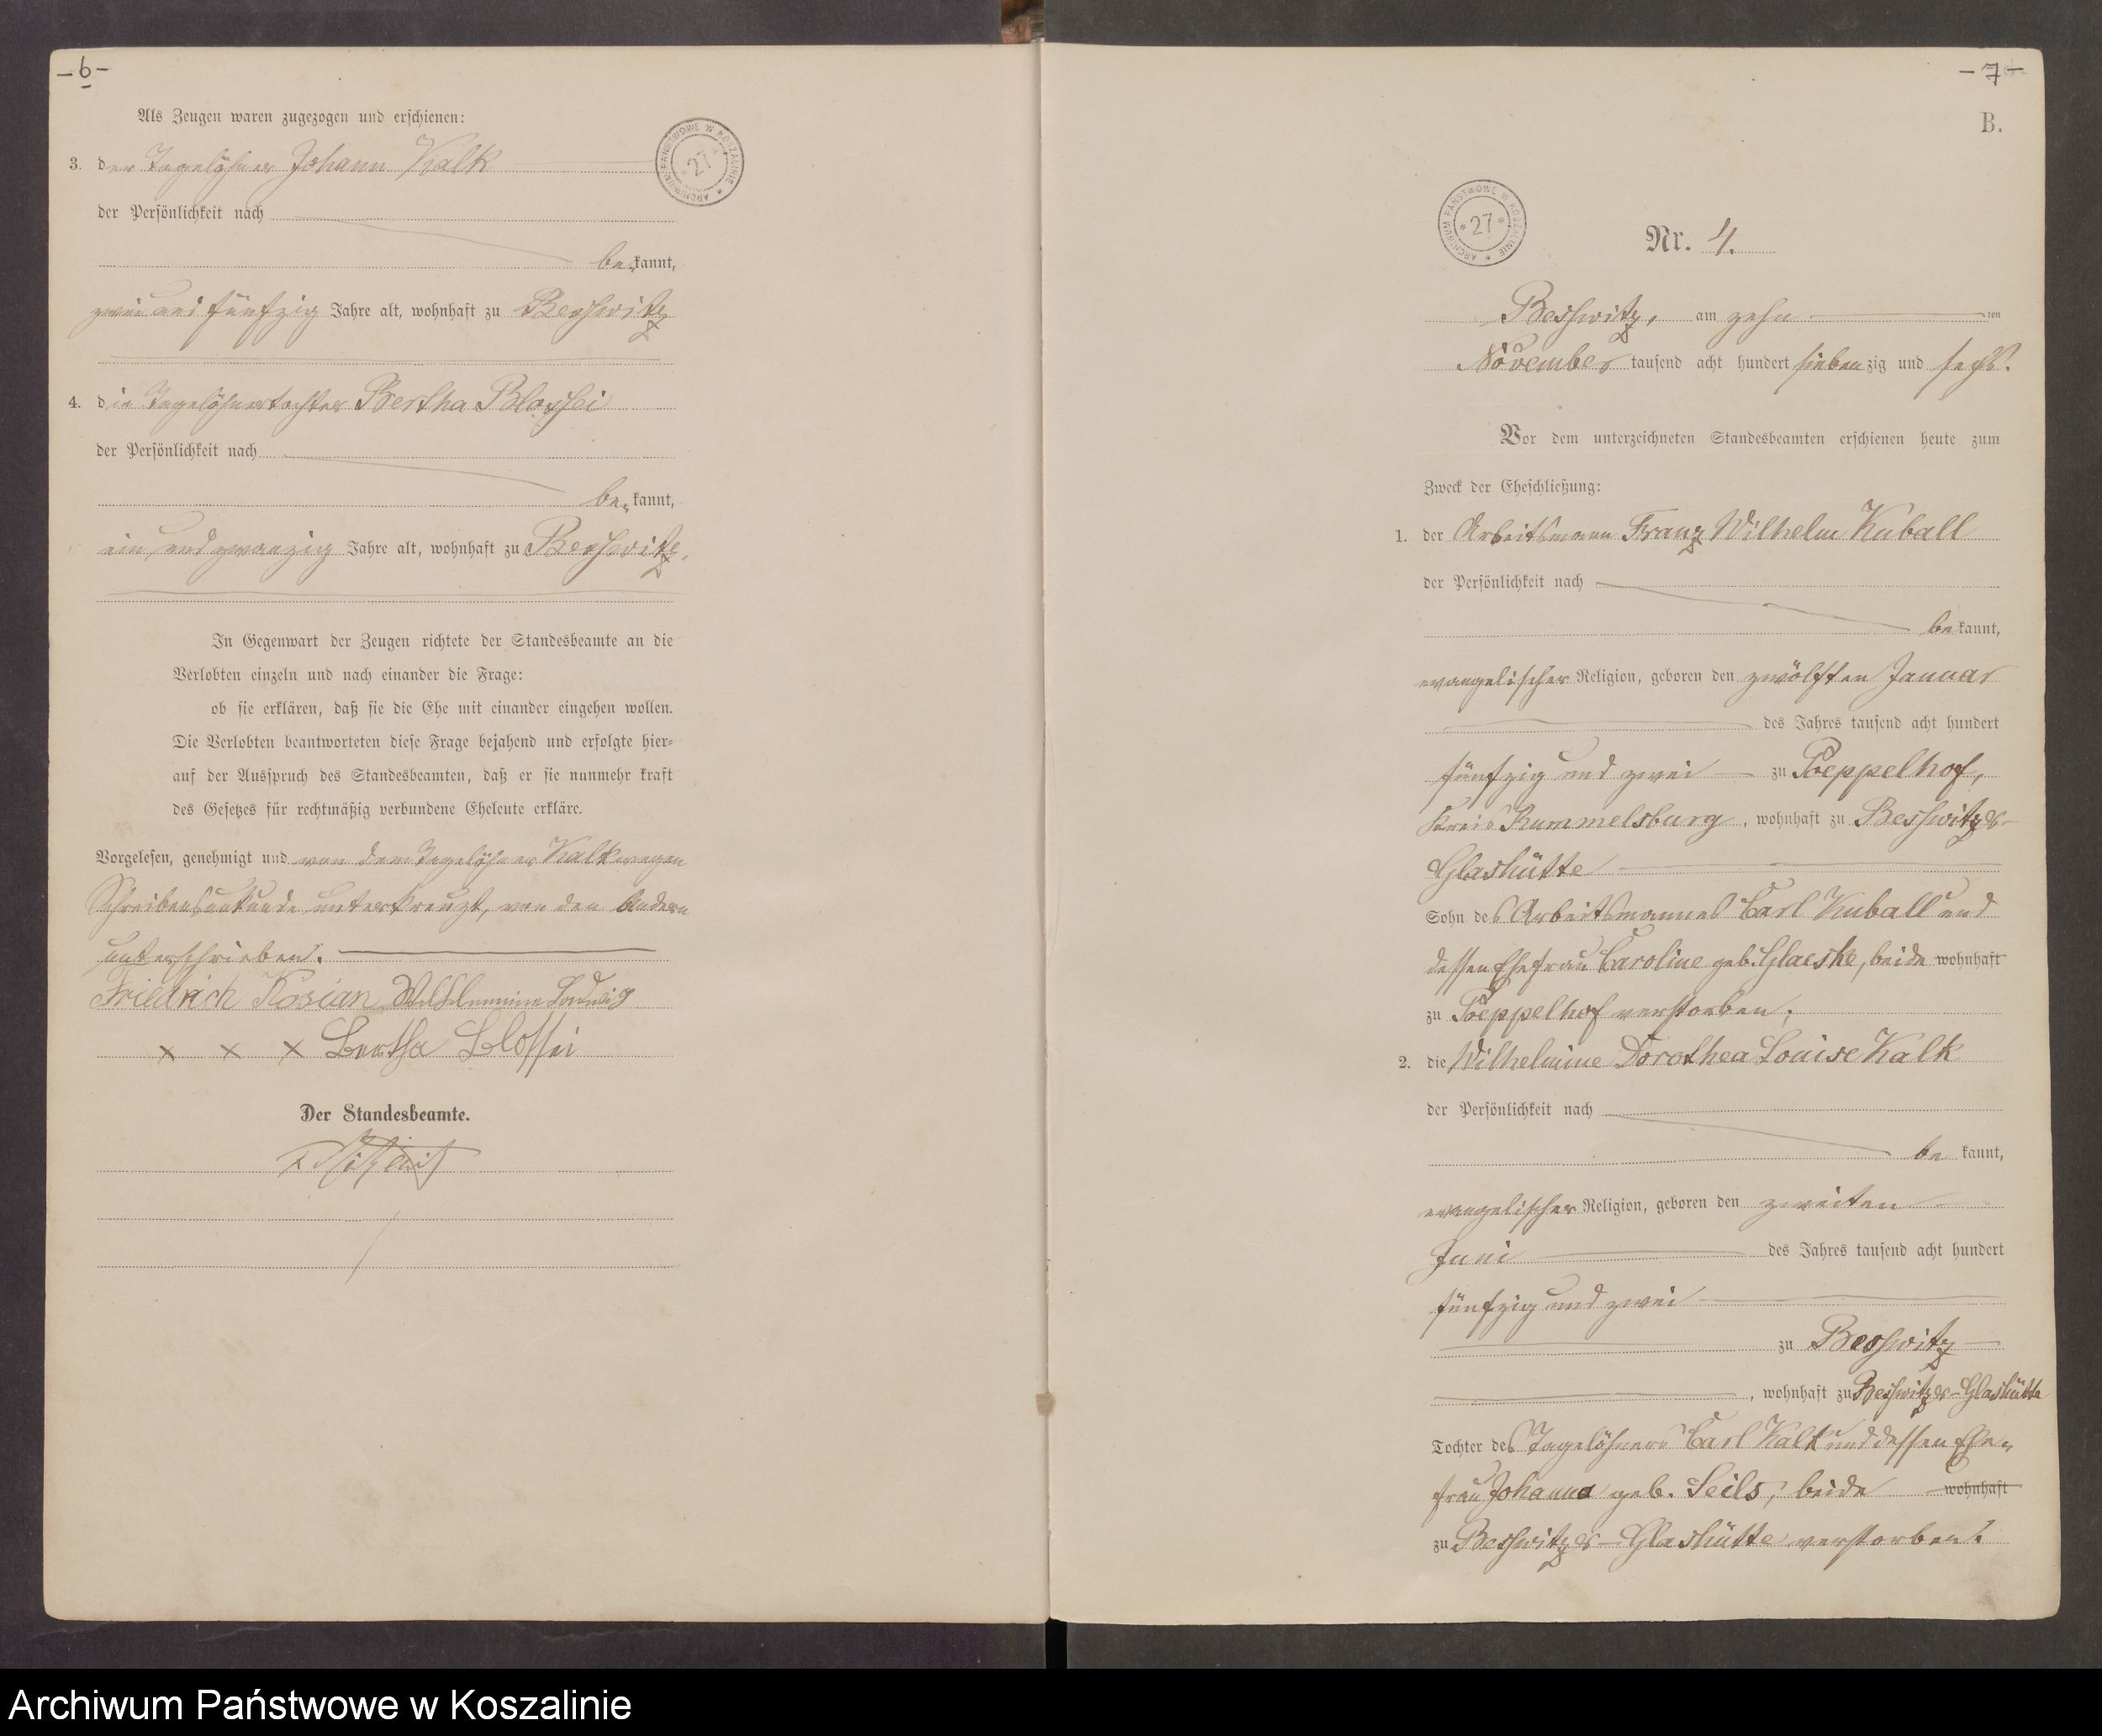 -6-
Als Zeugen waren zugezogen und erschienen:
3. der Tagelöhner Johann Kalk
der Persönlichkeit nach
be„kannt,
zwei und fünfzig Jahre alt, wohnhaft zu Besswitz
4. die Tagelöhnertochter Bertha Blossei
der Persönlichkeit nach
be„kannt,
ein und zwanzig Jahre alt, wohnhaft zu Besswitz.
In Gegenwart der Zeugen richtete der Standesbeamte an die
Verlobten einzeln und nach einander die Frage:
ob sie erklären, daß sie die Ehe mit einander eingehen wollen.
Die Verlobten beantworteten diese Frage bejahend und erfolgte hier-
auf der Ausspruch des Standesbeamten, daß er sie nunmehr kraft
des Gesetzes für rechtmäßig verbundene Eheleute erkläre.
Vorgelesen, genehmigt und von dem Tagelöhner Kalk wegen
Schreibensunkunde unterkreuzt, von den Andern
unterschrieben.
Friedrich Kosian Willhemine Ladwig
x x x Bertha Blossei
Der Standesbeamte.
ARCHIWUM PAŃSTWOWE W KOSZALINIE * 27 *
-7-
B.
ARCHIWUM PAŃSTWOWE W KOSZALINIE * 27 *
Nr. 4.
Besswitz, am zehn ten
November tausend acht hundert siebenzig und sechs.
Vor dem unterzeichneten Standesbeamten erschienen heute zum
Zweck der Eheschließung:
1. der Arbeitsmann Franz Wilhelm Kuball
der Persönlichkeit nach
bekannt,
evangelischer Religion, geboren den zwölften Januar
des Jahres tausend acht hundert
fünfzig und zwei zu Poeppelhof,
Kreis Rummelsburg, wohnhaft zu Besswitzer-
Glashütte
Sohn des Arbeitsmannes Carl Kuball und
dessen Ehefrau Caroline geb. Glaeske, beide wohnhaft
zu Poeppelhof verstorben;
2. die Wilhelmine Dorothea Louise Kalk
der Persönlichkeit nach
be kannt,
evangelischer Religion, geboren den zweiten
Juni des Jahres tausend acht hundert
fünfzig und zwei
zu Besswitz
, wohnhaft zu Besswitzer-Glashütte
Tochter des Tagelöhners Carl Kalk und dessen Ehe„
frau Johanna geb. Seils, beide wohnhaft
zu Besswitzer-Glashütte verstorben.
Archiwum Państwowe w Koszalinie